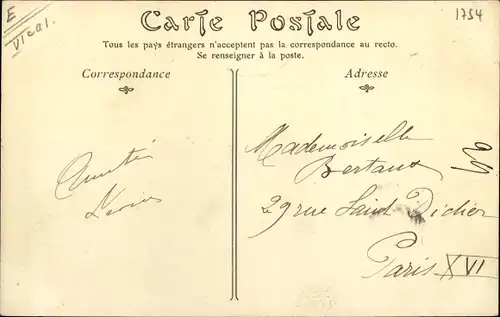 E
Carte Postale
1754
Tous les pays étrangers n'acceptent pas la correspondance au recto.
Se renseigner à la poste.
Correspondance
Adresse
Amitié
Mademoiselle
Bertaux
29 rue Saint Didier
Paris XVI